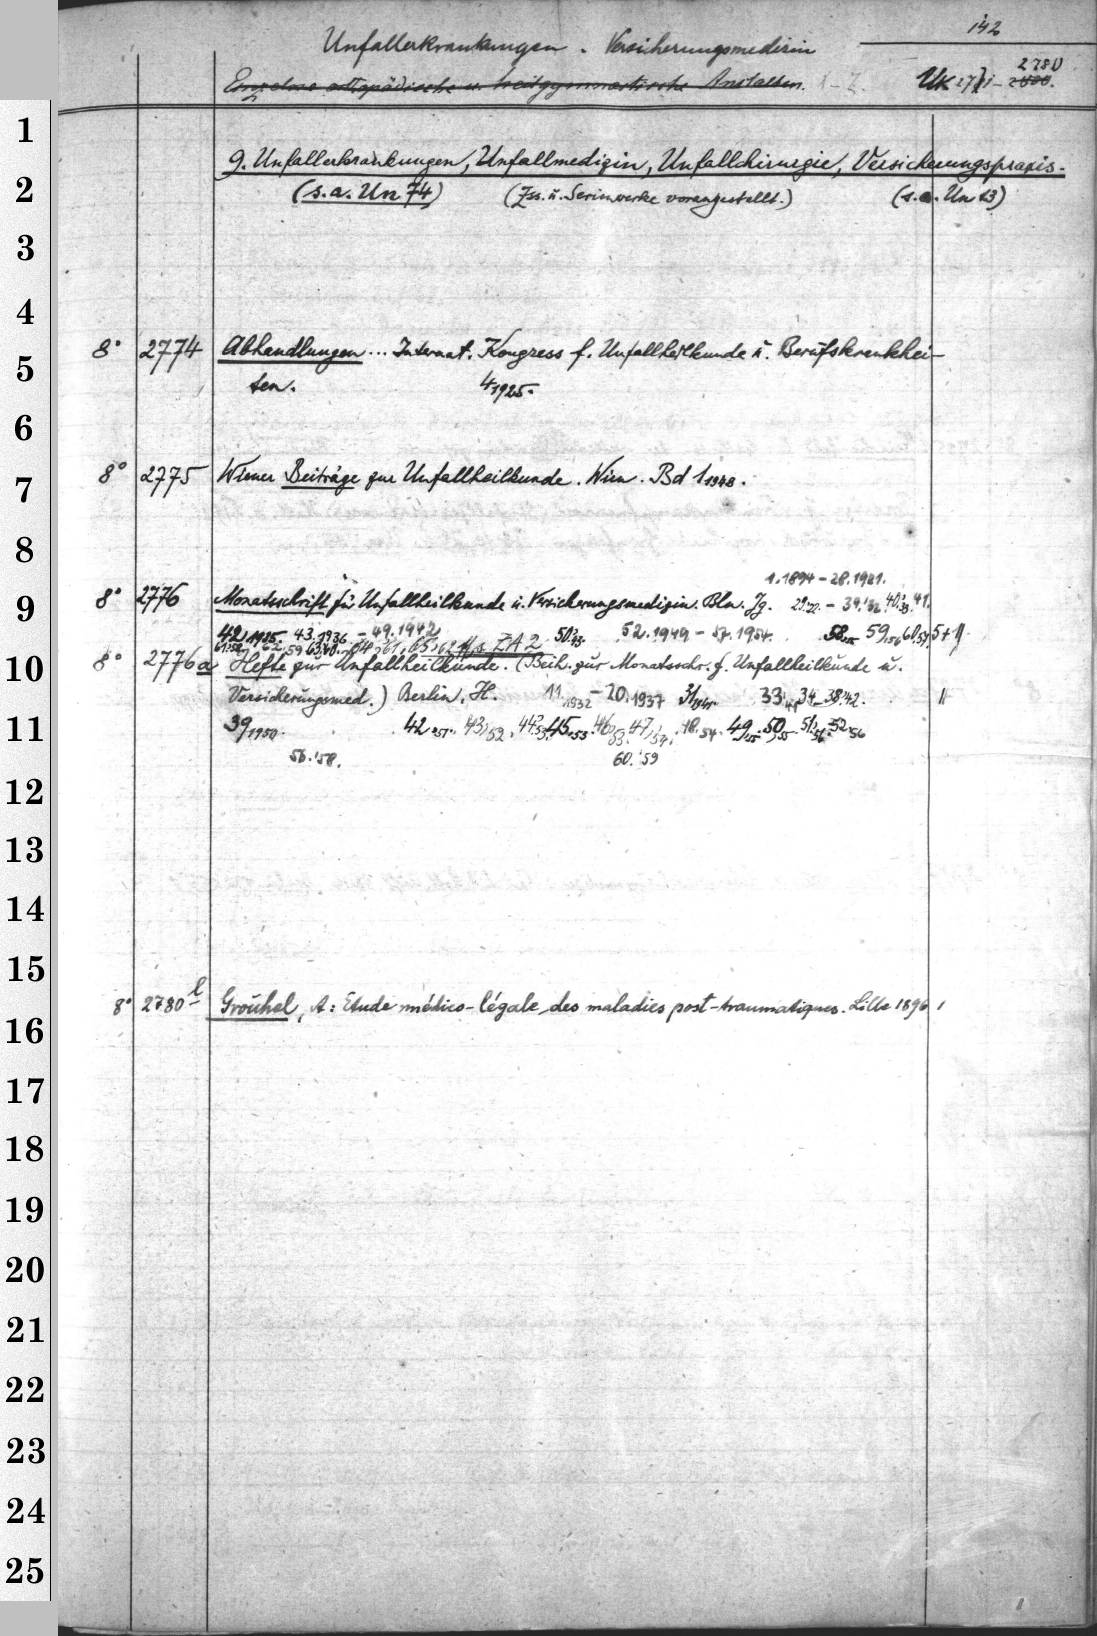 142
Unfallerkrankungen. Versicherungsmedizin
2780
Einzelne orthopädische u. heilgymnastische Anstalten. A-Z. Uk 2771-2800.
1
9. Unfallerkrankungen, Unfallmedizin, Unfallchirurgie, Versicherungspraxis.
2
(s.a. Un 74) (Zss. u. Serienwerke vorangestellt.) (s.a. Un 23)
3
4
8° 2774 Abhandlungen ... Internat. Kongress f. Unfallheilkunde u. Berufskrankhei-
5
ten. 4 1925.
6
8° 2775 Wiener Beiträge zur Unfallheilkunde. Wien. Bd 1 1948.
7
8
1.1894-28.1921.
8° 2776 Monatsschrift für Unfallheilkunde u. Versicherungsmedizin. Bln. Jg. 29.'22. - 39.'32 40.'33. 41.
9
42. 1935. 43.1936 - 49.1942 50.'43. 52.1949 - 57.1954. 58.55 59.56 60.57. 5+
s. ZA 2
8° 2776a Hefte zur Unfallheilkunde. (Beih. zur Monatsschr. f. Unfallheilkunde u.
10
Versicherungsmed.) Berlin. H. 11. 1932 - 20. 1937 31 33 34-38.'42. 11
39 1950. 42.51. 43.52. 44.53. 45.53. 46.53. 47.54. 48.54. 49.55. 50.55. 51.56. 52.56
11
56.'58. 60.'59
12
13
14
15
8° 2780 l Grouhel, A: Etude médico-légale des maladies post-traumatiques. Lille 1896 1
16
17
18
19
20
21
22
23
24
25